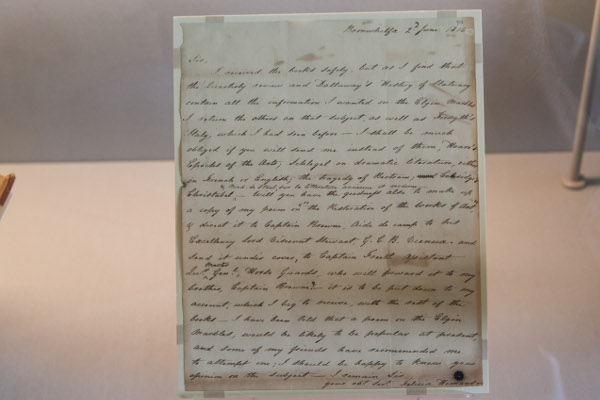 Bronwhilfa 2d June 1816
Sir,
I received the books safely, but as I find that
the Quarterly review and Dallaway's History of Statuary
contain all the information I wanted on the Elgin Marbles
I return the others on that subject, as well as Forsyth's
Italy, which I had seen before — I shall be much
obliged if you will send me instead of them, Hoare's
Epochs of the Arts, Schlegel on dramatic literature, either
in French or English, the tragedy of Bertram, Coleridge's
& Mad. de Stael
Christabel, — Will you have the goodness also to make up
a copy of my poem on the Restoration of the works of Art,
& direct it to Captain Browne, Aide de camp to his
Excellency Lord Viscount Stewart G.C.B. Vienna, and
send it under cover, to Captain Assistant
Genl., Horse Guards, who will forward it to my
brother, Captain Browne — it is to be put down to my
account, which I beg to receive, with the rest of the
books — I have been told that a poem on the Elgin
Marbles, would be likely to be popular at present
and some of my friends have recommended me
to attempt one; I should be happy to know your
opinion on the subject — I remain, Sir,
your obt. sert. Felicia Hemans